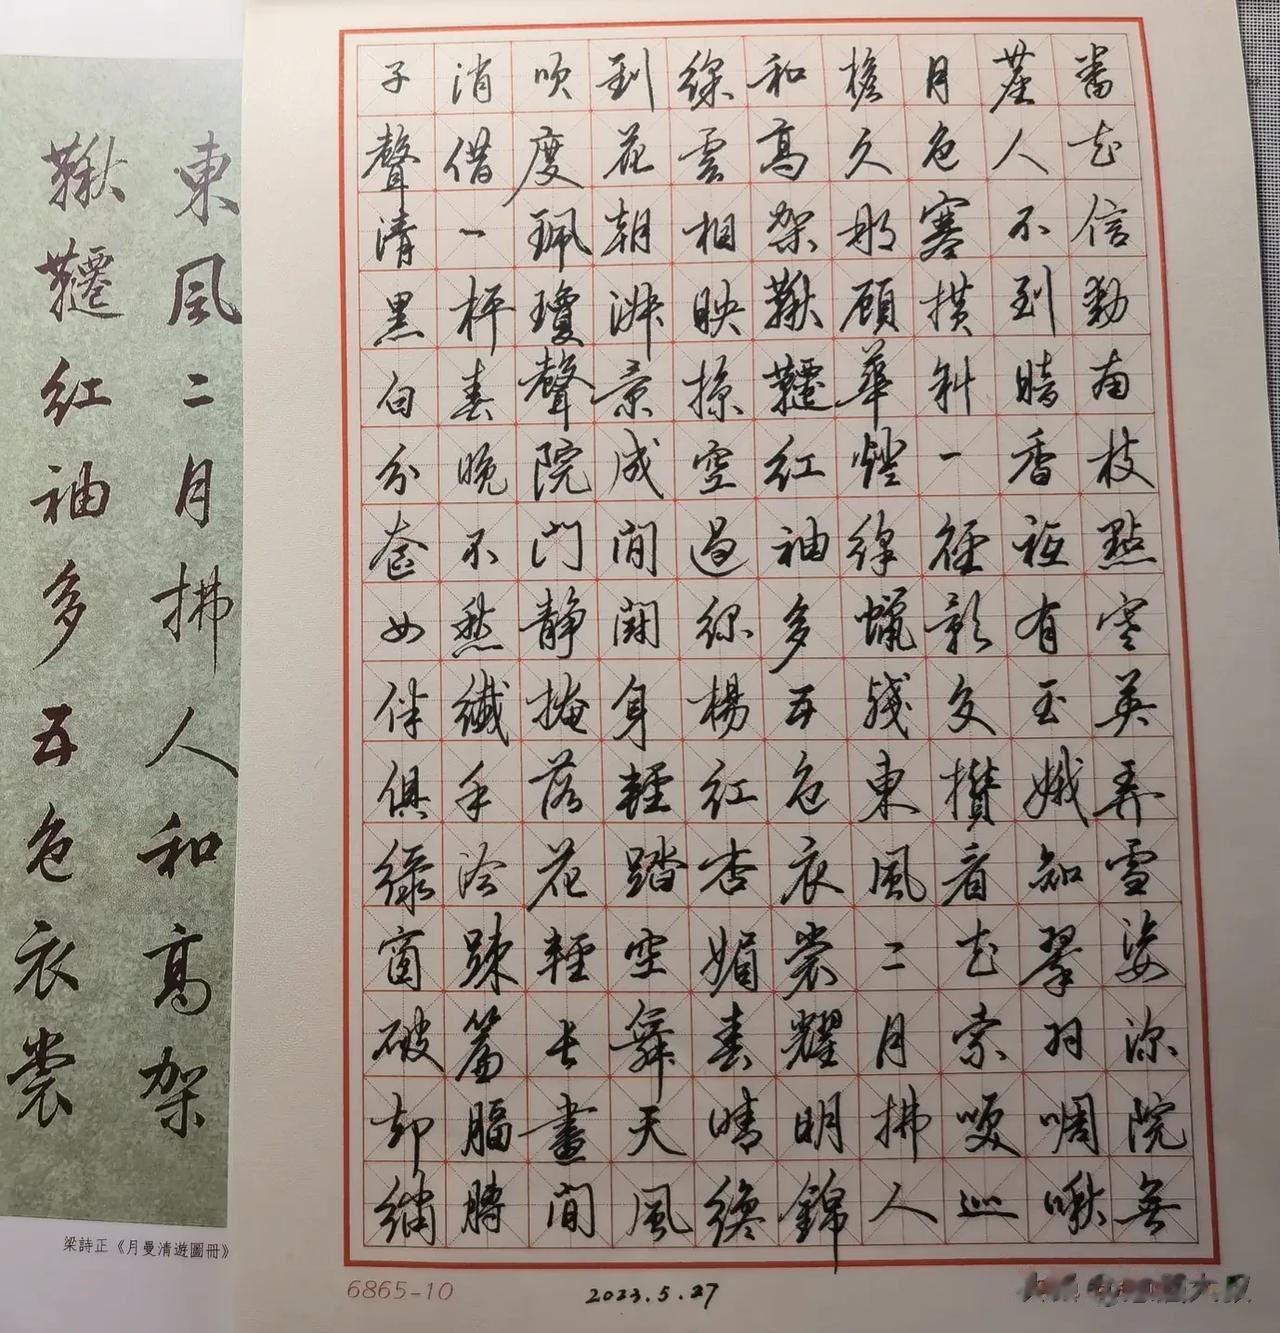 番花信動南枝點寒英弄雪姿深院無
塵人不到暗香祗有玉娥知翠羽啁啾
月色寒橫斜一徑影交攢看花索咲巡
檐久那顧華燈絳蠟殘東風二月拂人
和高架鞦韆紅袖多五色衣裳耀明錦
綵雲相映掠空過綠楊紅杏媚春晴纔
到花朝淑景成閒鬪身輕踏空舞天風
吹度珮瓊聲院門静掩落花輕長晝閒
消借一枰春晚不愁纖手冷踈簾腷膊
子聲清黑白分奩女伴俱綠窗破却繡
6865-10
2023.5.27
東風二月拂人和高架
鞦韆紅袖多五色衣裳
梁詩正《月曼清遊圖冊》